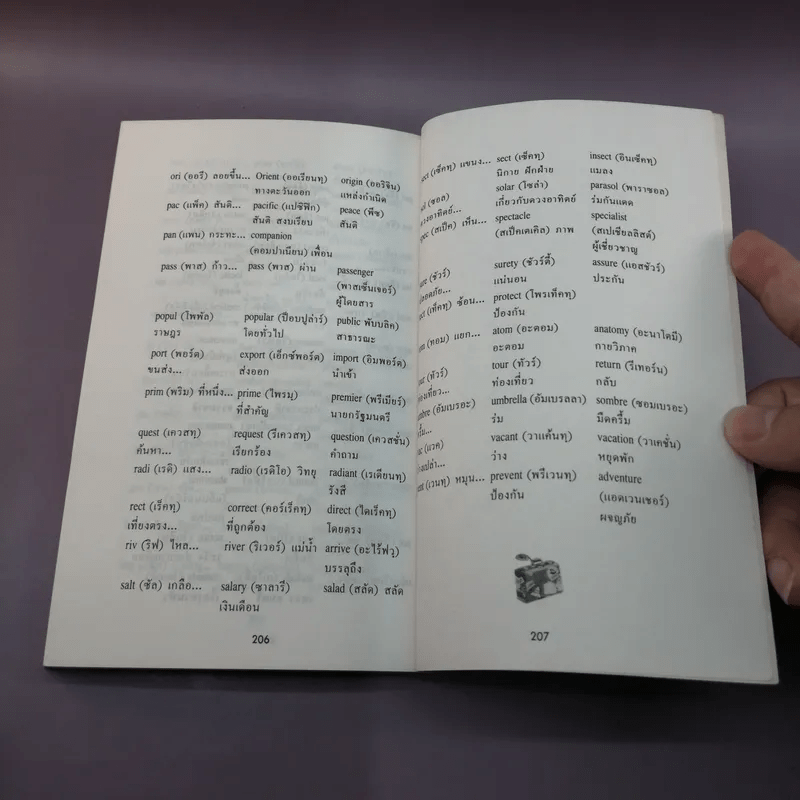 ori (ออรี) ลอยขึ้น... Orient (ออเรียนทฺ) origin (ออริจิน)
ทางตะวันออก แหล่งกำเนิด
pac (แพ็ค) สันติ... pacific (แปซิฟิก) peace (พีซ)
สันติ สงบเรียบ สันติ
pan (แพน) กระทะ... companion
(คอมปาเนียน) เพื่อน
pass (พาส) ก้าว... pass (พาส) ผ่าน passenger
(พาสเซ็นเจอร์)
ผู้โดยสาร
popul (ไพพัล) popular (ป๊อบปูล่าร์) public พับบลิค)
ราษฎร โดยทั่วไป สาธารณะ
port (พอร์ต) export (เอ็กซ์พอร์ต) import (อิมพอร์ต)
ขนส่ง... ส่งออก นำเข้า
prim (พริม) ที่หนึ่ง... prime (ไพรมฺ) premier (พรีเมียร์)
ที่สำคัญ นายกรัฐมนตรี
quest (เควสทฺ) request (รีเควสทฺ) question (เควสชั่น)
ค้นหา... เรียกร้อง คำถาม
radi (เรดิ) แสง... radio (เรดิโอ) วิทยุ radiant (เรเดียนทฺ)
รังสี
rect (เร็คทฺ) correct (คอร์เร็คทฺ) direct (ไดเร็คทฺ)
เที่ยงตรง... ที่ถูกต้อง โดยตรง
riv (ริฟ) ไหล... river (ริเวอร์) แม่น้ำ arrive (อะไร้ฟวฺ)
บรรลุถึง
salt (ซัล) เกลือ... salary (ซาลารี่) salad (สลัด) สลัด
เงินเดือน
206
(เซ็คทฺ) แขนง... sect (เซ็คทฺ) insect (อินเซ็คทฺ)
นิกาย ฝักฝ่าย แมลง
(ซอล) solar (โซล่า) parasol (พาราซอล)
เกี่ยวกับดวงอาทิตย์ ร่มกันแดด
(สเป็ค) เห็น... spectacle specialist
(สเป็คเตเคิล) ภาพ (สเปเชียลลิสต์)
ผู้เชี่ยวชาญ
(ชัวร์) surety (ชัวร์ตี้) assure (แอสชัวร์)
แน่นอน ประกัน
(เท็คทฺ) ซ้อน... protect (โพรเท็คทฺ)
ป้องกัน
(ทอม) แยก... atom (อะตอม) anatomy (อะนาโตมี)
อะตอม กายวิภาค
(ทัวร์) tour (ทัวร์) return (รีเทอร์น)
ท่องเที่ยว กลับ
(อัมเบรอะ) umbrella (อัมเบรลลา) sombre (ซอมเบรอะ)
ร่ม มืดครึ้ม
(แวค) vacant (วาแค้นทฺ) vacation (วาเคชั่น)
ว่าง หยุดพัก
(เวนทฺ) หมุน... prevent (พรีเวนทฺ) adventure
ป้องกัน (แอดเวนเชอร์)
ผจญภัย
207